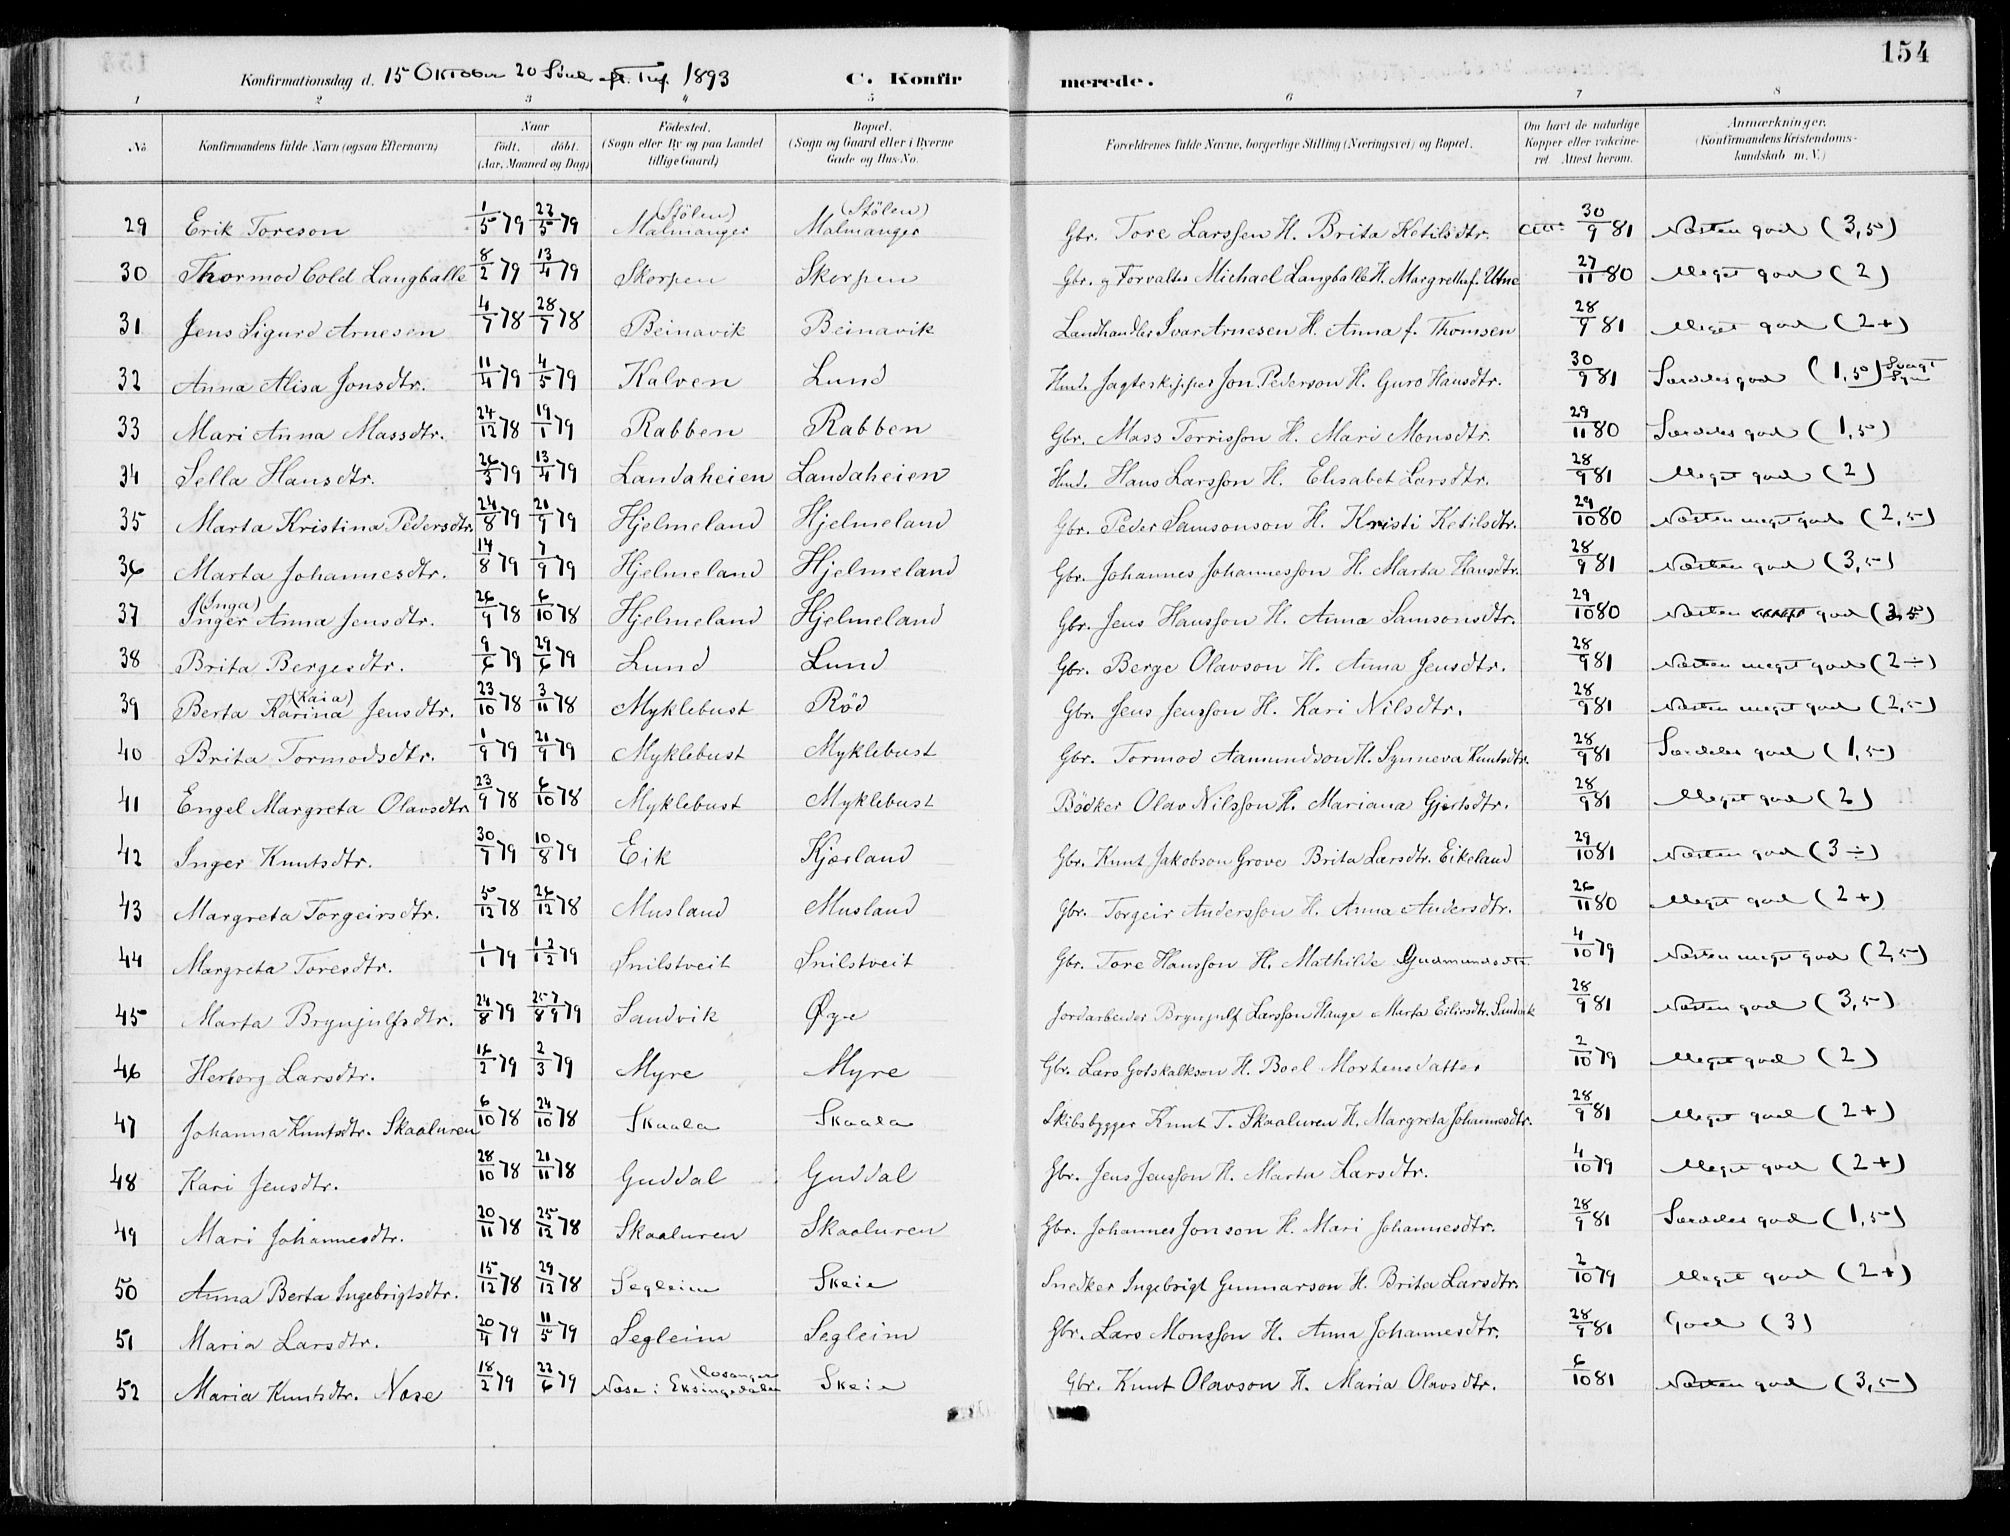 154
Konfirmationsdag d. 15 Oktober 20 Sönd. eft. Tref. 1893 C. Konfirmerede.
1 2 3 4 5 6 7 8
No Konfirmandens fulde Navn (ogsaa Efternavn) Naar födt. döbt. (Aar, Maaned og Dag) Födested. (Sogn eller By og paa Landet tillige Gaard) Bopæl. (Sogn og Gaard eller i Byerne Gade og Hus-No. Forældrenes fulde Navne, borgerlige Stilling (Næringsvei) og Bopæl. Om havt de naturlige Kopper eller vakcineret Attest herom. Anmærkninger. (Konfirmandens Kristendomskundskab m. V.)
29 Erik Toreson 1/5 79 22/5 79 (Stölen) Malmanger (Stölen) Malmanger Gbr. Tore Larssen H. Brita Ketilsdtr. 30/9 81 Næsten god (3,5)
30 Thormod Cold Langballe 8/2 79 13/4 79 Skorpen Skorpen Gbr. og Forvalter Michael Langballe H. Margrethe f. Utne 27/11 80 Meget god (2)
31 Jens Sigurd Arnesen 4/7 78 28/7 78 Beinavik Beinavik Landhandler Ivar Arnesen H. Anna f. Thomsen 28/9 81 Meget god (2+)
32 Anna Alisa Jonsdtr. 11/4 79 4/5 79 Kalven Lund Husm. Jagteskipper Jon Pederson H. Guro Hansdtr. 30/9 81 Særdeles god (1,5) Svagt Syn
33 Mari Anna Massdtr. 24/12 78 19/1 79 Rabben Rabben Gbr. Mass Torrisson H. Mari Monsdtr. 29/11 80 Særdeles god (1,5)
34 Sella Hansdtr. 26/3 79 13/4 79 Landaheien Landaheien Husm. Hans Larsson H. Elisabet Larsdtr. 28/9 81 Meget god (2)
35 Marta Kristina Pedersdtr. 24/8 79 21/9 79 Hjelmeland Hjelmeland Gbr. Peder Samsonson H. Kristi Ketilsdtr. 29/10 80 Næsten meget god (2,5)
36 Marta Johannesdtr. 14/8 79 7/9 79 Hjelmeland Hjelmeland Gbr. Johannes Johannesson H. Marta Hansdtr. 28/9 81 Næsten god (3,5)
37 (Inga) Inger Anna Jensdtr. 26/9 78 6/10 78 Hjelmeland Hjelmeland Gbr. Jens Hansson H. Anna Samsonsdtr. 29/10 80 Næsten meget god (3,5)
38 Brita Bergesdtr. 9/6 79 29/6 79 Lund Lund Gbr. Berge Olavson H. Anna Jensdtr. 28/9 81 Næsten meget god (2÷)
39 Berta Karina (Kaia) Jensdtr. 23/10 78 3/11 78 Myklebust Röd Gbr. Jens Jensson H. Kari Nilsdtr. 28/9 81 Næsten meget god (2,5)
40 Brita Tormodsdtr. 1/9 79 21/9 79 Myklebust Myklebust Gbr. Tormod Aamundson H. Synneva Knutsdtr. 28/9 81 Særdeles god (1,5)
41 Engel Margreta Olavsdtr. 23/9 78 6/10 78 Myklebust Myklebust Bödker Olav Nilsson H. Mariana Gjertsdtr. 28/9 81 Meget god (2)
42 Inger Knutsdtr. 30/7 79 10/8 79 Eik Kjærland Gbr. Knut Jakobson Grove Brita Larsdtr. Eikeland 29/10 81 Næsten god (3÷)
43 Margreta Torgeirsdtr. 5/12 78 26/12 78 Musland Musland Gbr. Torgeir Andersson H. Anna Andersdtr. 26/11 80 Meget god (2+)
44 Margreta Toresdtr. 1/1 79 12/2 79 Snilstveit Snilstveit Gbr. Tore Hansson H. Mathilde Gudmundsdtr. 4/10 79 Næsten meget god (2,5)
45 Marta Brynjulfsdtr. 24/8 79 25/8 7/9 79 Sandvik Øye Jordarbeider Brynjulf Larsson Hauge Marta Eilivsdtr. Sandvik 28/9 81 Næsten god (3,5)
46 Herborg Larsdtr. 16/2 79 2/3 79 Myre Myre Gbr. Lars Gotskalkson H. Boel Mortensdatter 2/10 79 Meget god (2)
47 Johanna Knutsdtr. Skaaluren 6/10 78 24/10 78 Skaala Skaala Skibsbygger Knut T. Skaaluren H. Margreta Johannesdtr. 28/9 81 Meget god (2+)
48 Kari Jensdtr. 28/10 78 21/11 78 Guddal Guddal Gbr. Jens Jensson H. Marta Larsdtr. 4/10 79 Meget god (2+)
49 Mari Johannesdtr. 20/11 78 25/12 78 Skaaluren Skaaluren Gbr. Johannes Jonson H. Mari Johannesdtr. 28/9 81 Særdeles god (1,5)
50 Anna Berta Ingebrigtsdtr. 15/12 78 29/12 78 Segleim Skeie Snedker Ingebrigt Gunnarson H. Brita Larsdtr. 2/10 79 Meget god (2+)
51 Maria Larsdtr. 20/4 79 11/5 79 Segleim Segleim Gbr. Lars Monsson H. Anna Johannesdtr. 28/9 81 God (3)
52 Maria Knutsdtr. Nose 18/2 79 22/6 79 Nose i Eksingedalen Skeie Gbr. Knut Olavson H. Maria Olavsdtr. 6/10 81 Næsten god (3,5)